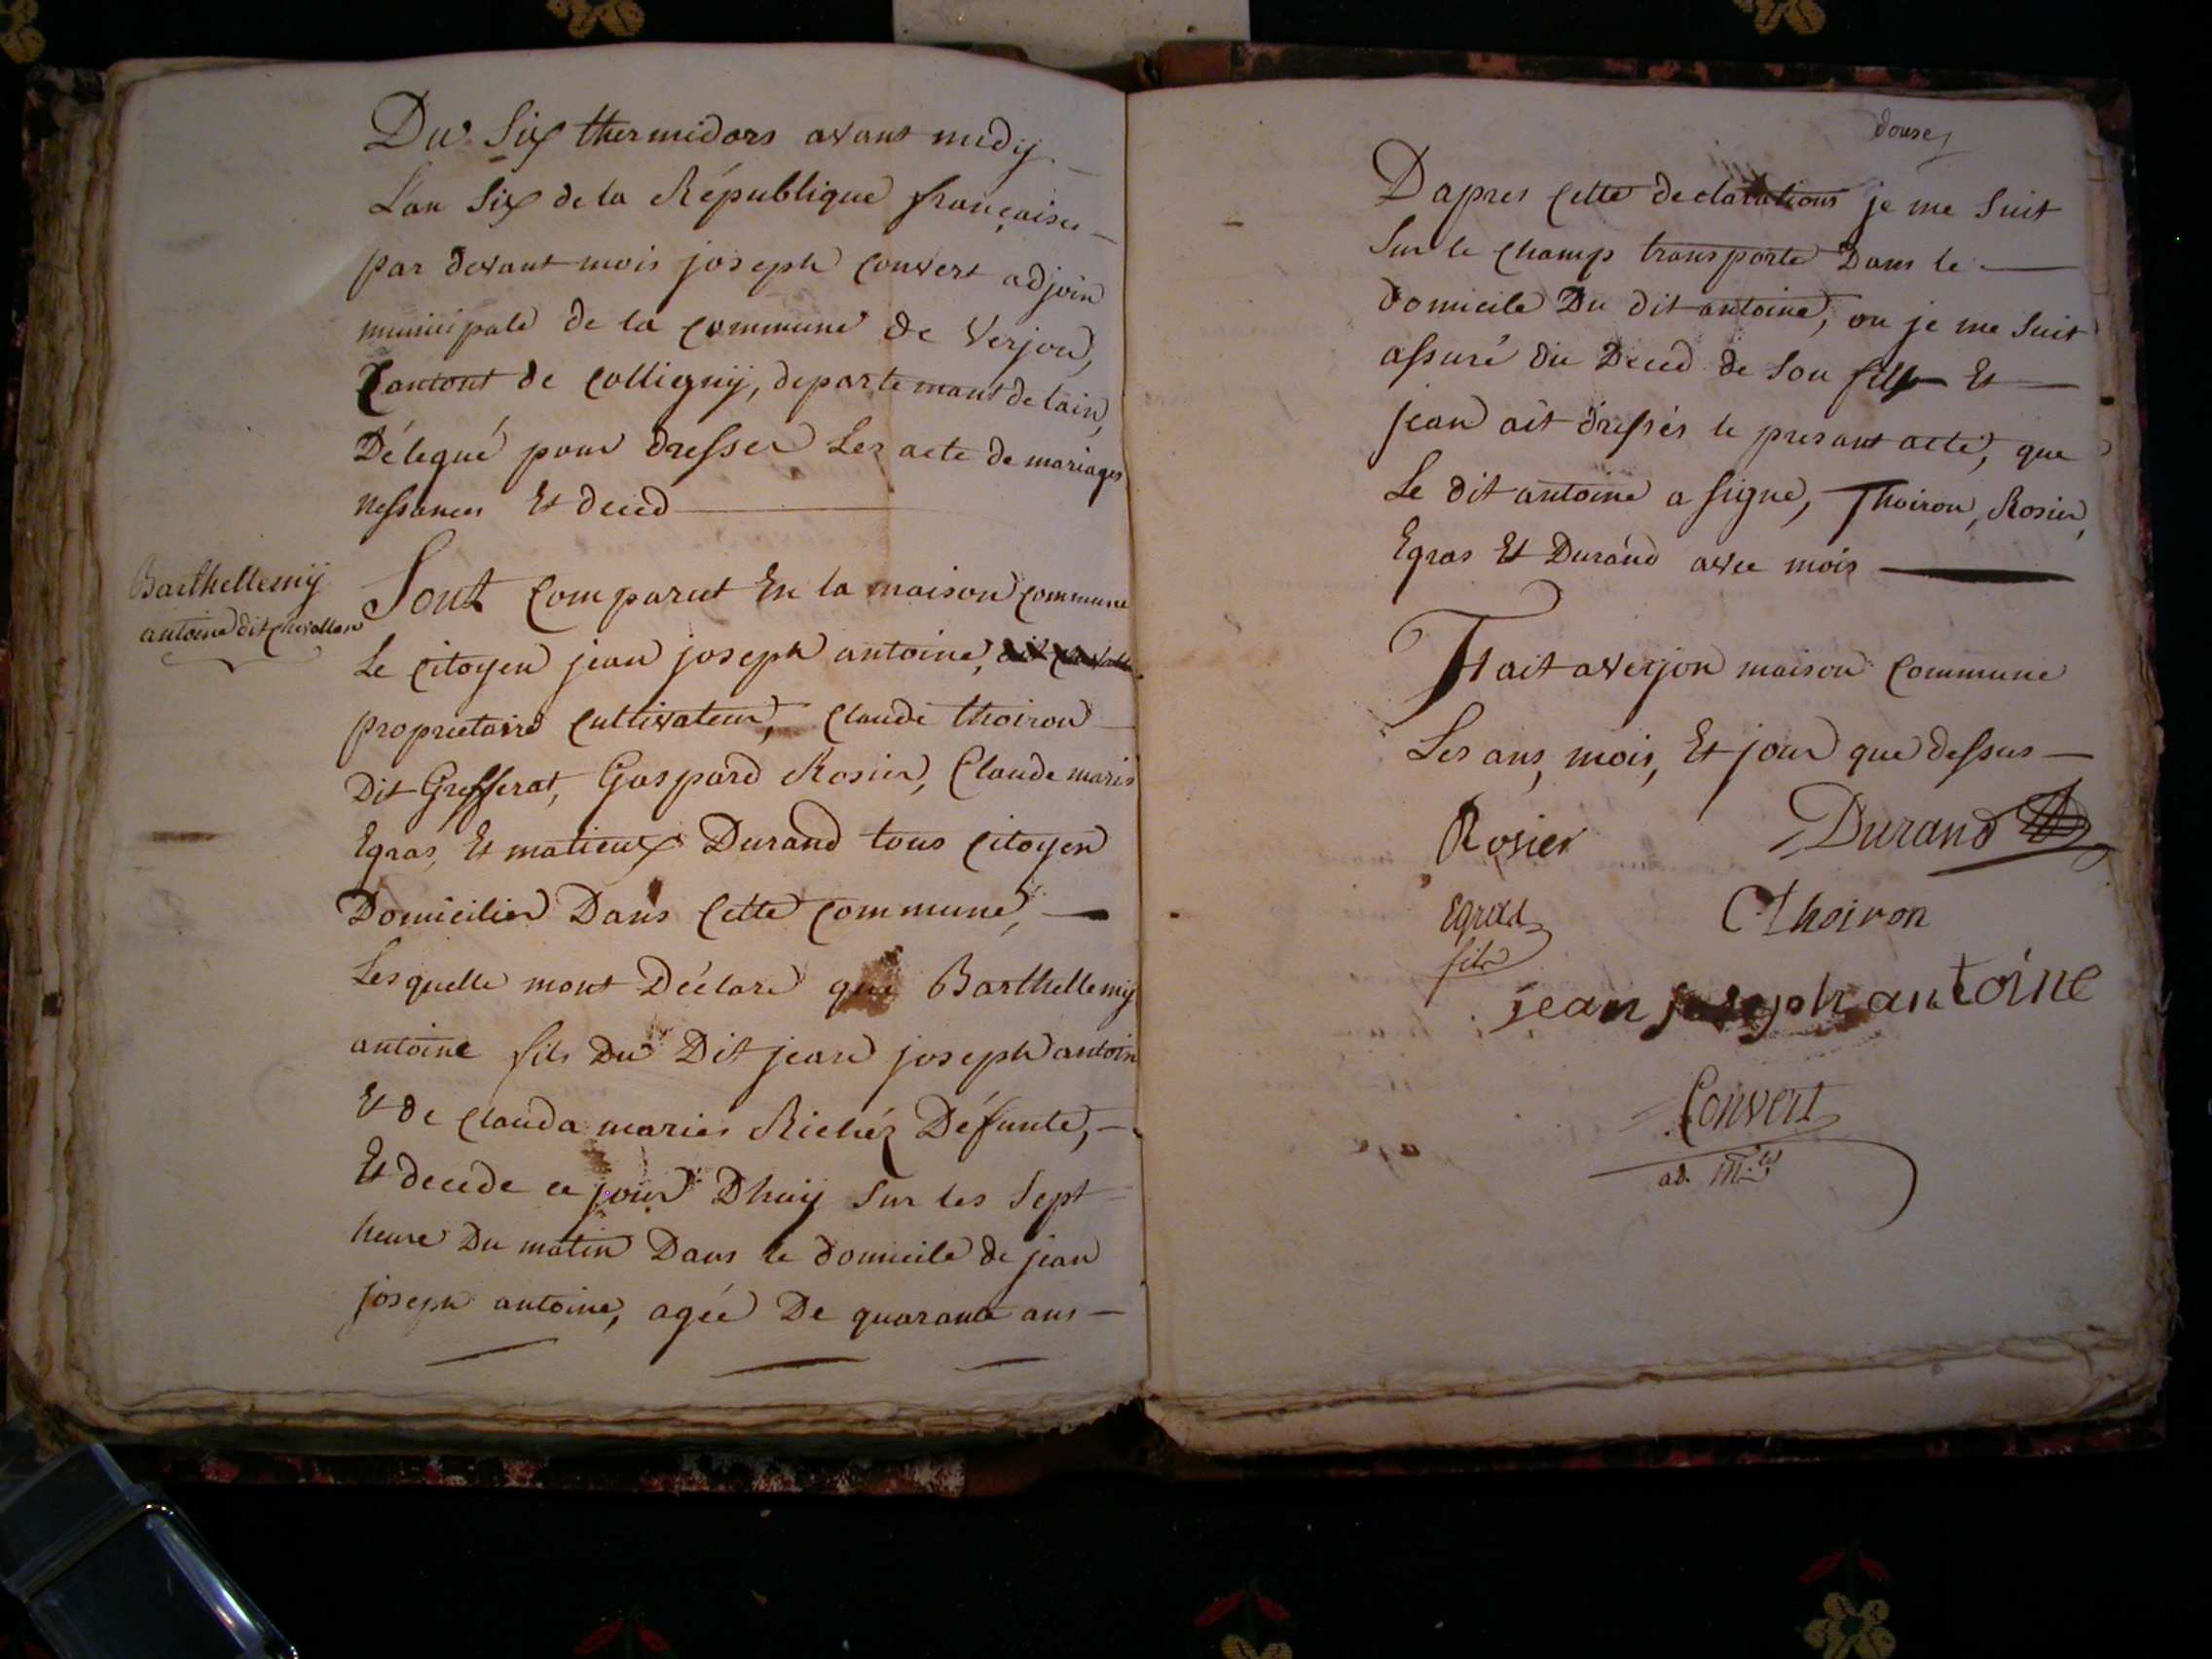 Du Six thermidors avant midy
L'an Six de la République françaises
par devant mois joseph Convert adjoin
municipale de la Commune de Verjon,
Cantont de Colligny, departemant de lain,
Délegué pour dresser Les acte de mariages
nessances Et deced
Barthellemÿ
antoine dit chevallon
Sont Comparut En la maison commune
Le Citoyen jean joseph antoine,
proprietaire Cultivateur, Claude thoiron
Dit Grefferat, Gaspard Rosier, Claude maris
Egras, Et matieux Durand tous Citoyen
Domicilier Dans Cette Commune,
Lesquelle mont Déclare que Barthellemÿ
antoine fils Du Dit jean joseph antoin
Et de Clauda maries Richéz Défunte,
Et decede ce jour Dhuÿ Sur les Sept
heure Du matin Dans le domicile de jean
joseph antoine, agée De quarante ans
douse
Dapres Cette declarations je me Suit
Sur le Champ transporte Dans le
domicile Du dit antoine, ou je me Suit
assuré du Deced de Son Et
jean ait dressés le presant acte, que
Le dit antoine a signe, Thoiron, Rosier,
Egras Et Durand avec mois
Fait a Verjon maison Commune
Les ans, mois, Et jour que dessus
Rosier
Durand
Egras
fils
C Thoiron
jean joseph antoine
Convert
ad. M.